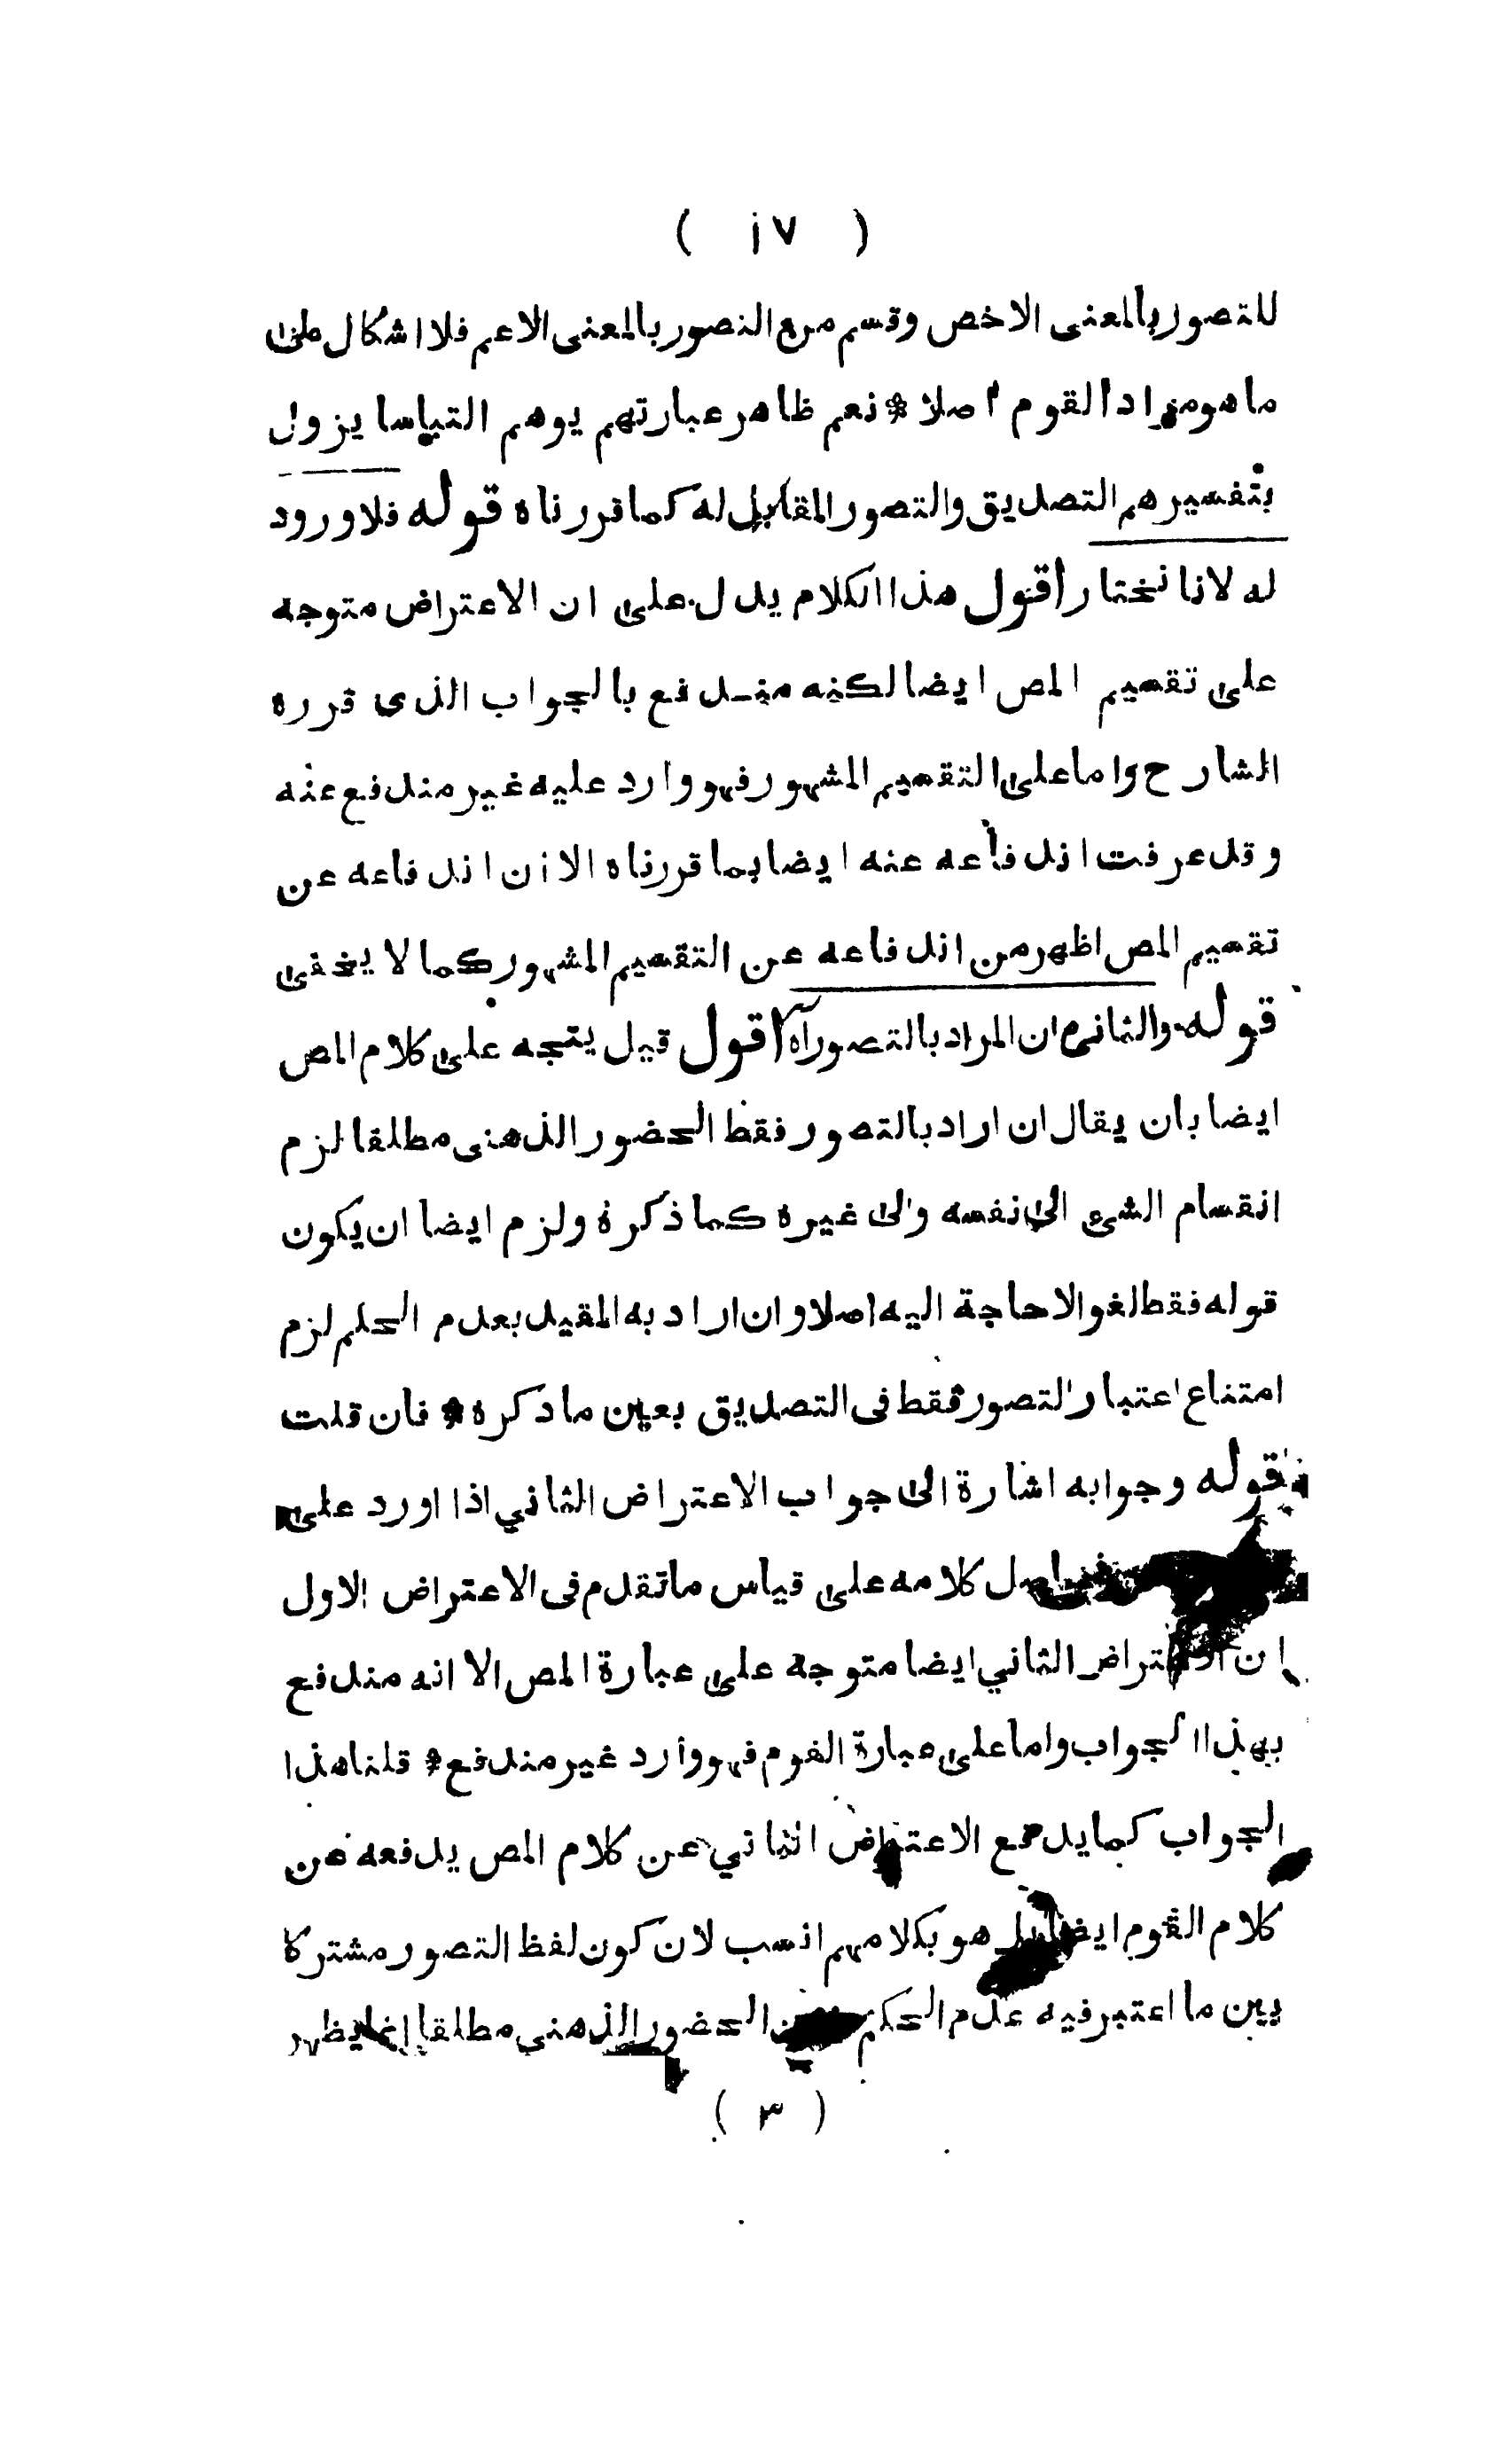 ( ١٧ )
للتصور بالمعنى الاخص وقسم من التصور بالمعنى الاعم فلا اشكال على
ما هو مراد القوم اصلا * نعم ظاهر عبارتهم يوهم التباسا يزول
بتفسيرهم التصديق والتصور المقابل له كما قررناه قوله فلا ورود
له لانا نختار اقول هذا الكلام يدل على ان الاعتراض متوجه
على تقسيم المص ايضا لكنه مندفع بالجواب الذى قرره
الشارح واما على التقسيم المشهور فهو وارد عليه غير مندفع عنه
وقد عرفت اندفاعه عنه ايضا بما قررناه الا ان اندفاعه عن
تقسيم المص اظهر من اندفاعه عن التقسيم المشهور كما لا يخفى
قوله والثانى ان المراد بالتصور آه اقول قيل يتجه على كلام المص
ايضا بان يقال ان اراد بالتصور فقط الحضور الذهنى مطلقا لزم
انقسام الشئ الى نفسه والى غيره كما ذكره ولزم ايضا ان يكون
قوله فقط لغوا لا حاجة اليه اصلا وان اراد به المقيد بعدم الحكم لزم
امتناع اعتبار التصور فقط فى التصديق بعين ما ذكره * فان قلت
فقوله وجوابه اشارة الى جواب الاعتراض الثاني اذا اورد على
كلامه على قياس ما تقدم فى الاعتراض الاول
ان الاعتراض الثاني ايضا متوجه على عبارة المص الا انه مندفع
بهذا الجواب واما على عبارة القوم فهو وارد غير مندفع * قلنا هذا
الجواب كما يدفع الاعتراض الثاني عن كلام المص يدفعه عن
كلام القوم ايضا بل هو بكلامهم انسب لان كون لفظ التصور مشتركا
بين ما اعتبر فيه عدم الحكم الحضور الذهنى مطلقا انما يظهر
( ٣ )